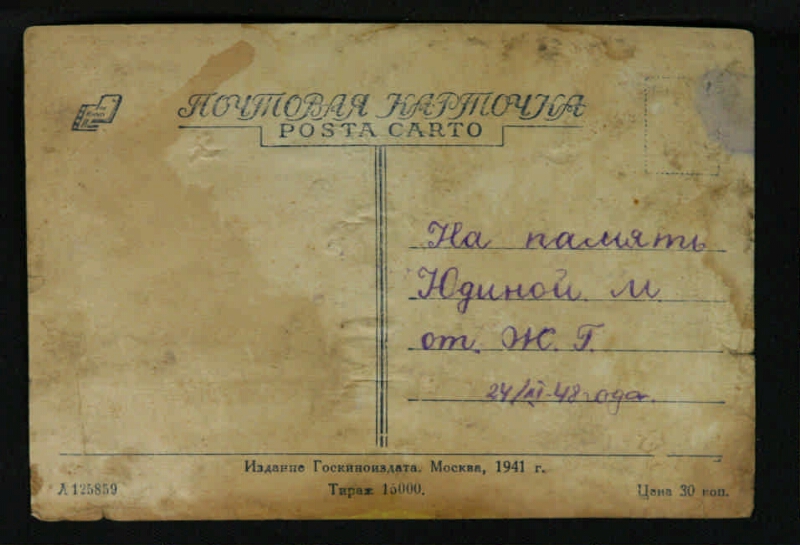 ПОЧТОВАЯ КАРТОЧКА
POSTA CARTO
На память
Юдиной М
от. Ж. Г.
24/XI-48 года.
Издание Госкиноиздата. Москва, 1941 г.
Л125859
Тираж 15000.
Цена 30 коп.